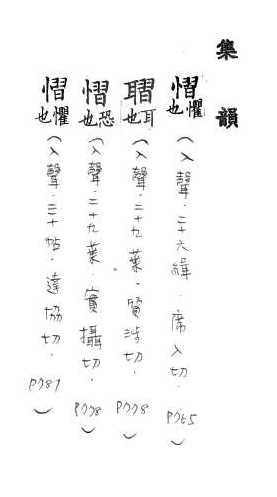 集韻
慴懼也（入聲．二十六緝．席入切．P765）
聑耳也（入聲．二十九葉．質涉切．P778）
慴恐也（入聲．二十九葉．實攝切．P778）
慴懼也（入聲．三十帖．達協切．P781）